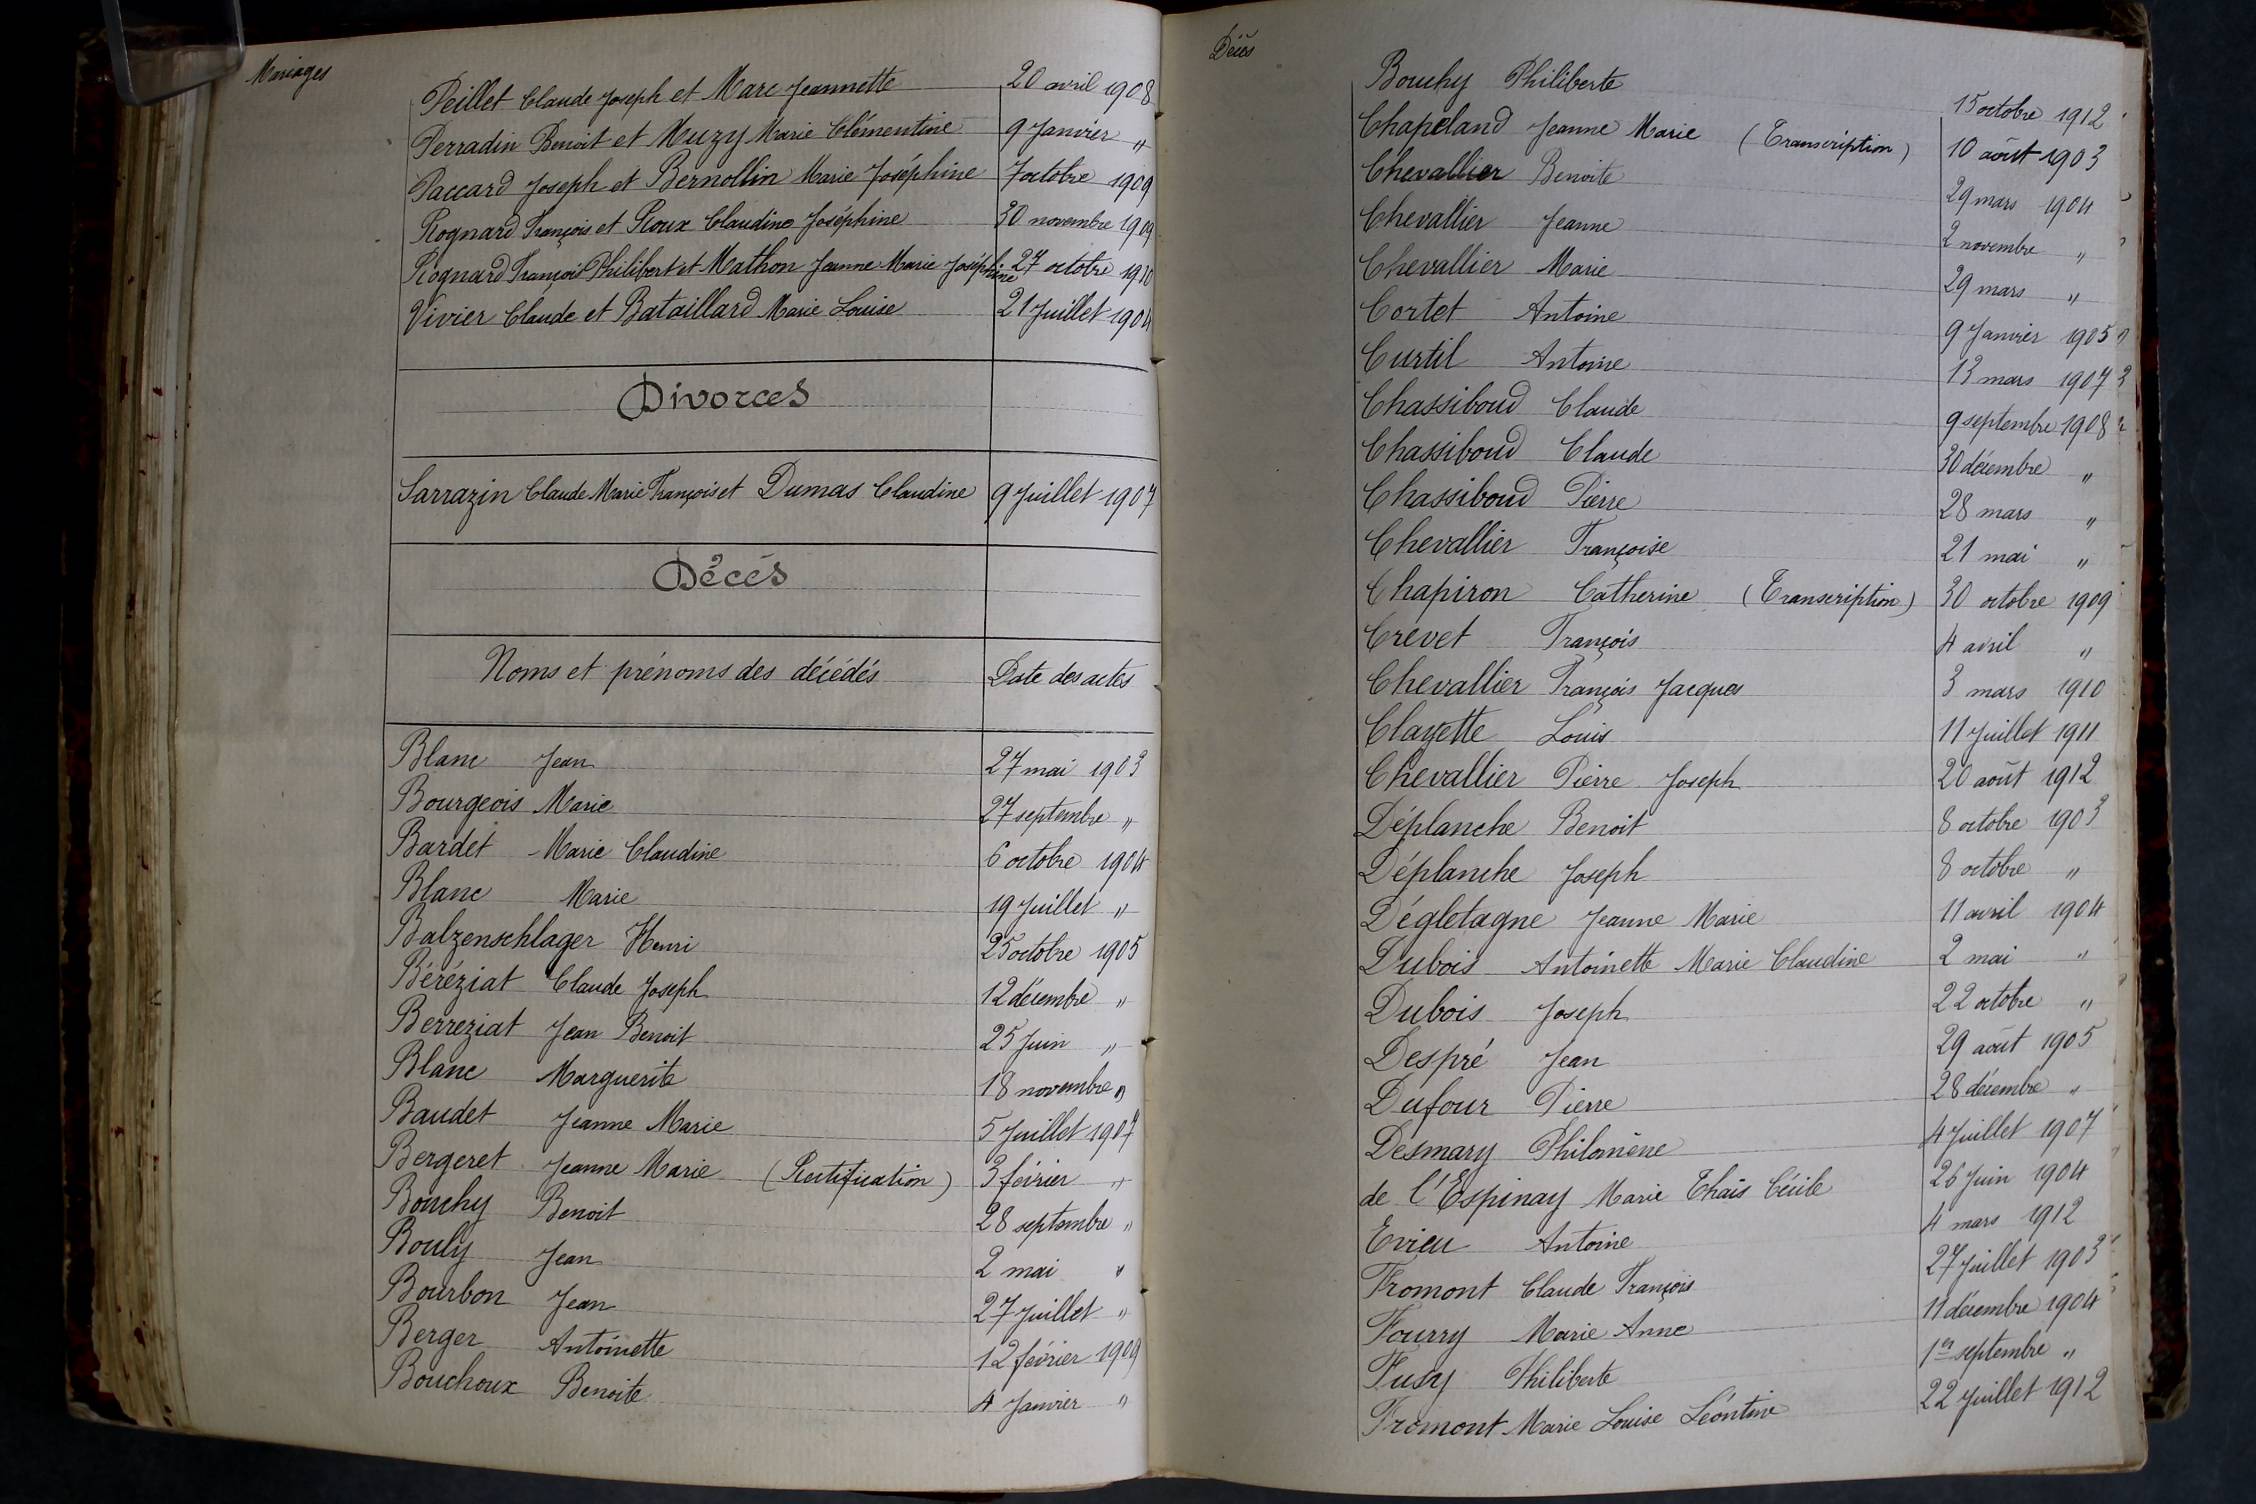 Mariages
Peillet Claude Joseph et Marc Jeannette 20 avril 1908
Perradin Benoit et Muzy Marie Clémentine 9 Janvier "
Paccard Joseph et Bernollin Marie Joséphine 7 octobre 1909
Rognard François et Roux Claudine Joséphine 30 novembre 1909
Rognard François Philibert et Mathon Jeanne Marie Joséphine 27 octobre 1910
Vivier Claude et Bataillard Marie Louise 21 Juillet 1904
Divorces
Sarrazin Claude Marie François et Dumas Claudine 9 Juillet 1907
Décès
Noms et prénoms des décédés Date des actes
Blanc Jean 27 mai 1903
Bourgeois Marie 27 septembre "
Bardet Marie Claudine 6 octobre 1904
Blanc Marie 19 Juillet "
Balzenschlager Henri 25 octobre 1905
Béréziat Claude Joseph 12 décembre "
Berreziat Jean Benoit 25 Juin "
Blanc Marguerite 18 novembre "
Baudet Jeanne Marie 5 Juillet 1907
Bergeret Jeanne Marie (Rectification) 3 février "
Bouchy Benoit 28 septembre "
Bouly Jean 2 mai "
Bourbon Jean 27 Juillet "
Berger Antoinette 12 février 1909
Bouchoux Benoite 4 Janvier "
Décès
Bouchy Philiberte 15 octobre 1912
Chapeland Jeanne Marie (Transcription) 10 août 1903
Chevallier Benoite 29 mars 1904
Chevallier Jeanne 2 novembre "
Chevallier Marie 29 mars "
Cortet Antoine 9 Janvier 1905
Curtil Antoine 13 mars 1907
Chassiboud Claude 9 septembre 1908
Chassiboud Claude 30 décembre "
Chassiboud Pierre 28 mars "
Chevallier Françoise 21 mai "
Chapiron Catherine (Transcription) 30 octobre 1909
Crevet François 4 avril "
Chevallier François Jacques 3 mars 1910
Clayette Louis 11 Juillet 1911
Chevallier Pierre Joseph 20 août 1912
Déplanche Benoit 8 octobre 1903
Déplanche Joseph 8 octobre "
Dégletagne Jeanne Marie 11 avril 1904
Dubois Antoinette Marie Claudine 2 mai "
Dubois Joseph 22 octobre "
Despré Jean 29 août 1905
Dufour Pierre 28 décembre "
Desmary Philomène 4 Juillet 1907
de l'Espinay Marie Thaïs Cécile 26 Juin 1904
Evieu Antoine 4 mars 1912
Fromont Claude François 27 Juillet 1903
Fourry Marie Anne 11 décembre 1904
Fusy Philiberte 1er septembre "
Fromont Marie Louise Léontine 22 Juillet 1912